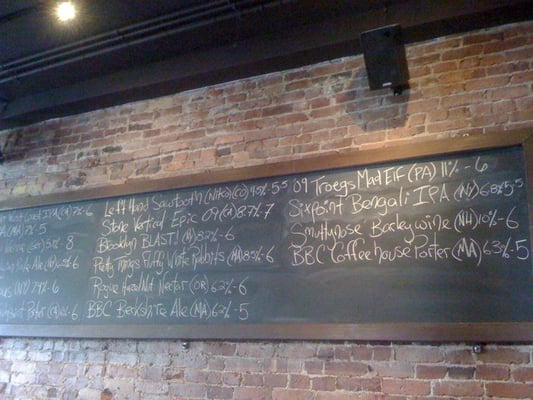 West Coast IPA (CA) 7%-6
(MA) 7%-5
5% 8
Pale Ale
(NY) 7.4%-6
Porter (CA) 6%-6
Left Hand Sawtooth (Nitro) (CO) 4.5%-5.5
Stone Vertical Epic 09 (CA) 8.7% 7
Brooklyn BLAST! 8.2%-6
Pretty Things Fluffy White Rabbits (MA) 8.5%-6
Rogue Hazelnut Nectar (OR) 6.2%-6
BBC Berkshire Ale (MA) 6.2%-5
09 Troegs Mad Elf (PA) 11%-6
Sixpoint Bengali IPA (NY) 6.8% 5.5
Smuttynose Barleywine (NH) 10%-6
BBC Coffeehouse Porter (MA) 6.3%-5